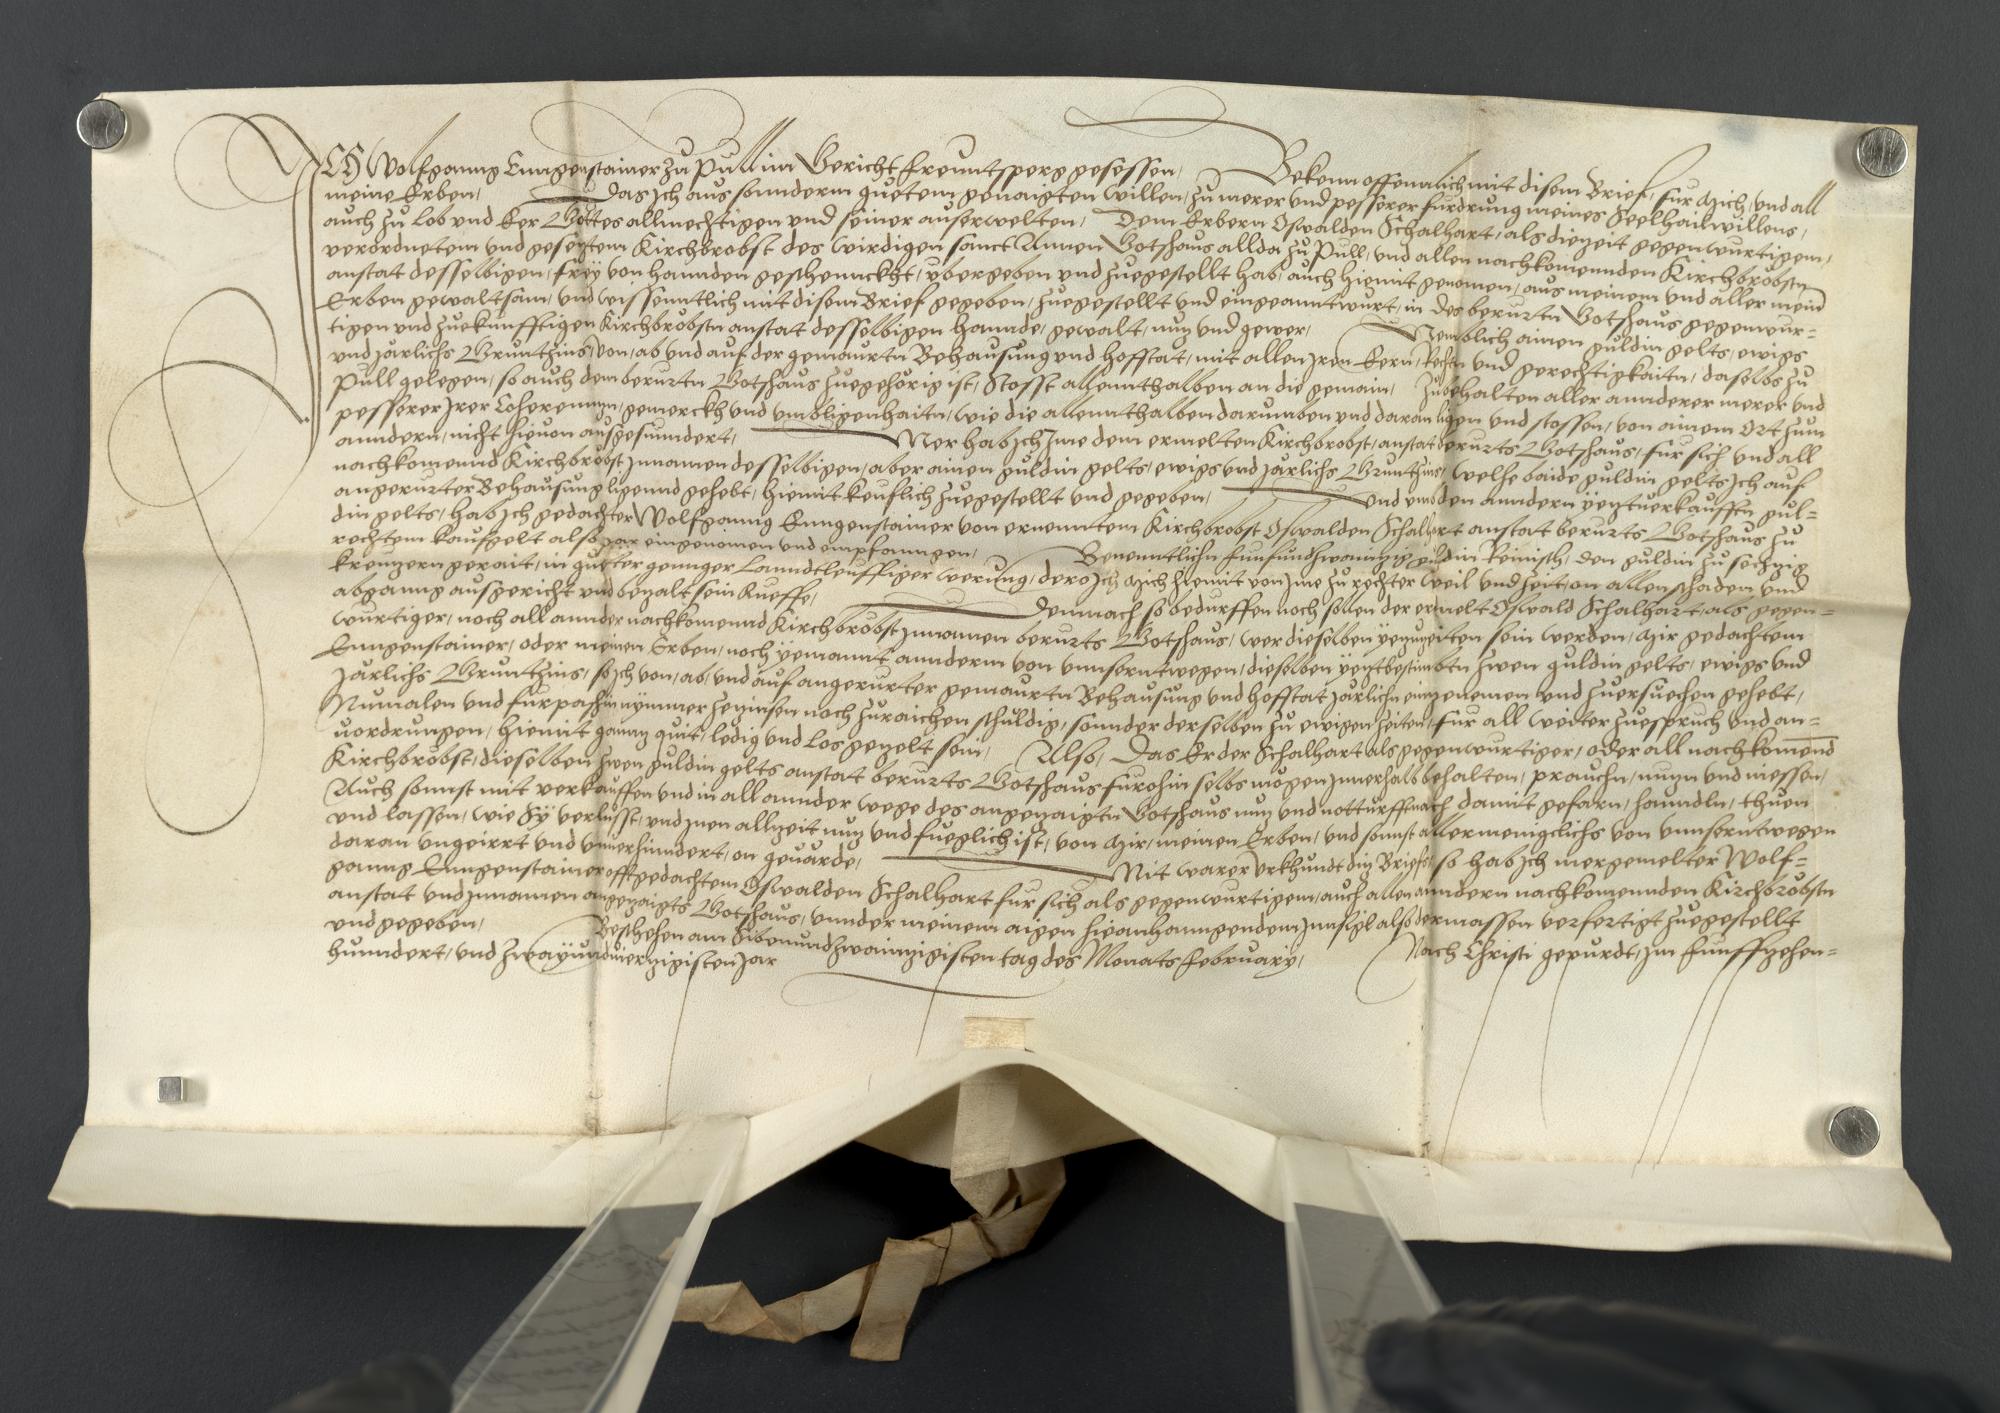 ICH Wolfganng Eungenstainer zu Pull im Gericht Freuntsperg gesessen, Bekenn offennlich mit disem Brief, für mich, und all
meine Erben, Das Ich aus sonnderm guetem genaigten willen, zu merer und pesserer fürdrung meines Seelhailwillens,
auch zu Lob und Eer Gottes allmechtigen und seiner auserwelten, Dem Erbern Oswalden Schalhart, als diezeit gegenwurtigem,
verordnetem und gesetztem Kirchbrobst des wirdigen sanct Annen Gotshaus allda zu Pull, und allen nachkomennden Kirchbröbsten
anstat desselbigen, frey von hannden geschennckht, ubergeben und zuegestellt hab, auch hiemit genomen, aus meinem und aller mein
Erben gewaltsam, und wissenntlich mit disem Brief gegeben, zuegestellt und eingeanntwurt, in des berurtn Gotshaus gegenwur-
tigen und zuekunfftigen Kirchbröbstn anstat desselbigen hannde, gewalt, nutz und gewer, Nemblich ainen guldin gelts, ewigs
und Järlichs Grunntzins, von, ab und auf der gemaurtn Behausung und hofstat, mit allen Iren Eern, Rechtn und gerechtigkaitn, daselbs zu
Pull gelegen, so auch dem berurtn Gotshaus zuegehörig ist, Stosst allennthalben an die gemain, Zubehalten aller annderer merer und
pesserer Irer Coherenntzn, gemerckh und umbligenhaitn, wie die allennthalben darumben und daran ligen und stossen, von ainem Ort zum
anndern, nicht hievon ausgesunndert, Mer hab Ich Ime dem ermelten Kirchbrobst, anstat berurts Gotshaus, für sich und all
nachkomennd Kirchbröbst Innamen desselbigen, aber ainen guldin gelts, ewigs und Järlichs Grunntzins, welhe baide guldin gelts Ich auf
angerurter Behausung ligennd gehebt, hiemit keuflich zuegestellt und gegeben, Und umb den anndern yetzt verkaufftn gul-
din gelts, hab Ich gedachter Wolfganng Eungenstainer von ernenntem Kirchbrobst Oswalden Schalhart anstat berurts Gotshaus zu
rechtem kaufgelt also par eingenomen und empfanngen, Benenntlichn funfundzwainzig guldin Reinisch, den guldin zu sechzig
kreutzern gerait, in guetter genger Lanndtleuffiger werung, dero Ich mich hiemit von Ime zu rechter weil und zeit, on allen schaden und
abganng ausgericht und bezalt sein Rueffe, Demnach so bedurffen noch sollen der ermelt Oswald Schalhart, als gegen-
wurtiger, noch all annder nachkomennd Kirchbröbst Innamen berurts Gotshaus, wer dieselben yetzuzeiten sein werden, mir gedachtem
Eungenstainer, oder meinen Erben, noch yemannt annderm von unnserntwegen, dieselben yetzt bestimbtn zwen guldin gelts, ewigs und
Järlichs Grunntzins, so Ich von, ab, und auf angerurter gemaurtn Behausung und hofstat Järlichn einzenemen und zuersuechen gehebt,
Numalen und fürpashin nymmer zezinsen noch zuraichen schuldig, sonnder derselben zu ewigen zeiten, für all weitter zuespruch und an-
vordrungen, hiemit ganntz quit, ledig und los gezelt sein, Also, Das Er der Schalhart als gegenwurtiger, oder all nachkomend
Kirchbröbst, dieselben zwen guldin gelts anstat berurts Gotshaus fürohin selbs mögen Innerhalb behalten, prauchn, nutzn und niessen,
Auch sonnst mit verkauffen und in all annder wege des angezaigtn Gotshaus nutz und notturfft nach damit gefarn, hanndln, thuen
und lassen, wie Sy verlusst, und Inen allzeit nutz und fueglich ist, von mir, meinen Erben, und sonnst allermenigclichs von unnserntwegen
daran ungeirrt und unverhinndert, on gevärde, Mit warer Urkhundt ditz Briefs, so hab Ich mergemelter Wolf-
ganng Eungenstainer offtgedachtem Oswalden Schalhart für sich als gegenwurtigem, auch allen anndern nachkomennden Kirchbröbstn
anstat und Innamen angezaigts Gotshaus, unnder meinem aigen hieanhanngendem Innsigl also dermassen verfertigt zuegestellt
und gegeben, Beschehen am Sibenundzwainzigisten tag des Monats February, Nach Christi gepurdt, Im Funffzehen-
hunndert, und zwayundvierzigisten Jar